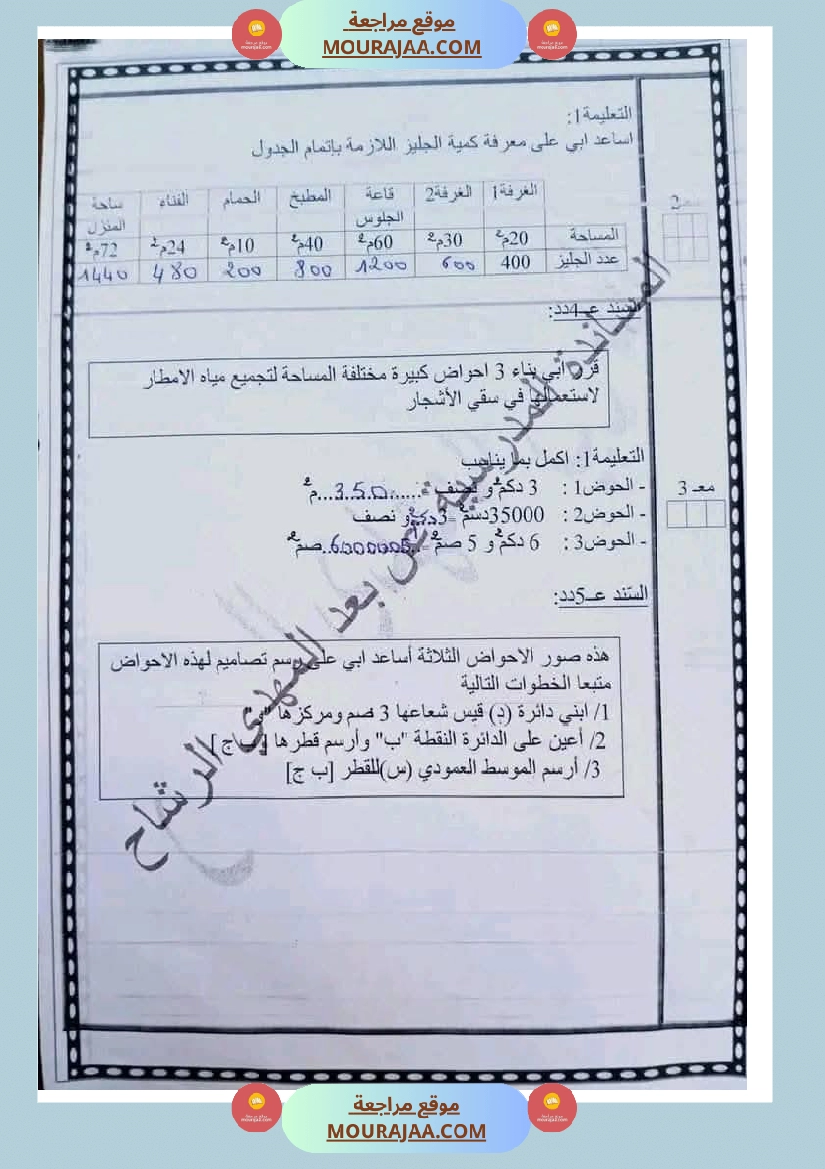 موقع مراجعة
MOURAJAA.COM
التعليمة1:
اساعد ابي على معرفة كمية الجليز اللازمة بإتمام الجدول
الغرفة1 الغرفة2 قاعة الجلوس المطبخ الحمام الفناء ساحة المنزل
المساحة 20م² 30م² 60م² 40م² 10م² 24م² 72م²
عدد الجليز 400 600 1200 800 200 480 1440
السند عـ4ـدد:
قرر ابي بناء 3 احواض كبيرة مختلفة المساحة لتجميع مياه الامطار
لاستعمالها في سقي الأشجار
التعليمة1: اكمل بما يناسب
معـ 3
- الحوض1 : 3 دكم² و نصف =......350...م²
- الحوض2 : 35000دسم² =3 دكم² و نصف
- الحوض3 : 6 دكم² و 5 صم² =..6000005..صم²
السند عـ5ـدد:
هذه صور الاحواض الثلاثة أساعد ابي على رسم تصاميم لهذه الاحواض
متبعا الخطوات التالية
1/ ابني دائرة (د) قيس شعاعها 3 صم ومركزها "و"
2/ أعين على الدائرة النقطة "ب" وأرسم قطرها [ب ج]
3/ أرسم الموسط العمودي (س)للقطر [ب ج]
المساندة المدرسية عن بعد المهدي الرشاح
موقع مراجعة
MOURAJAA.COM